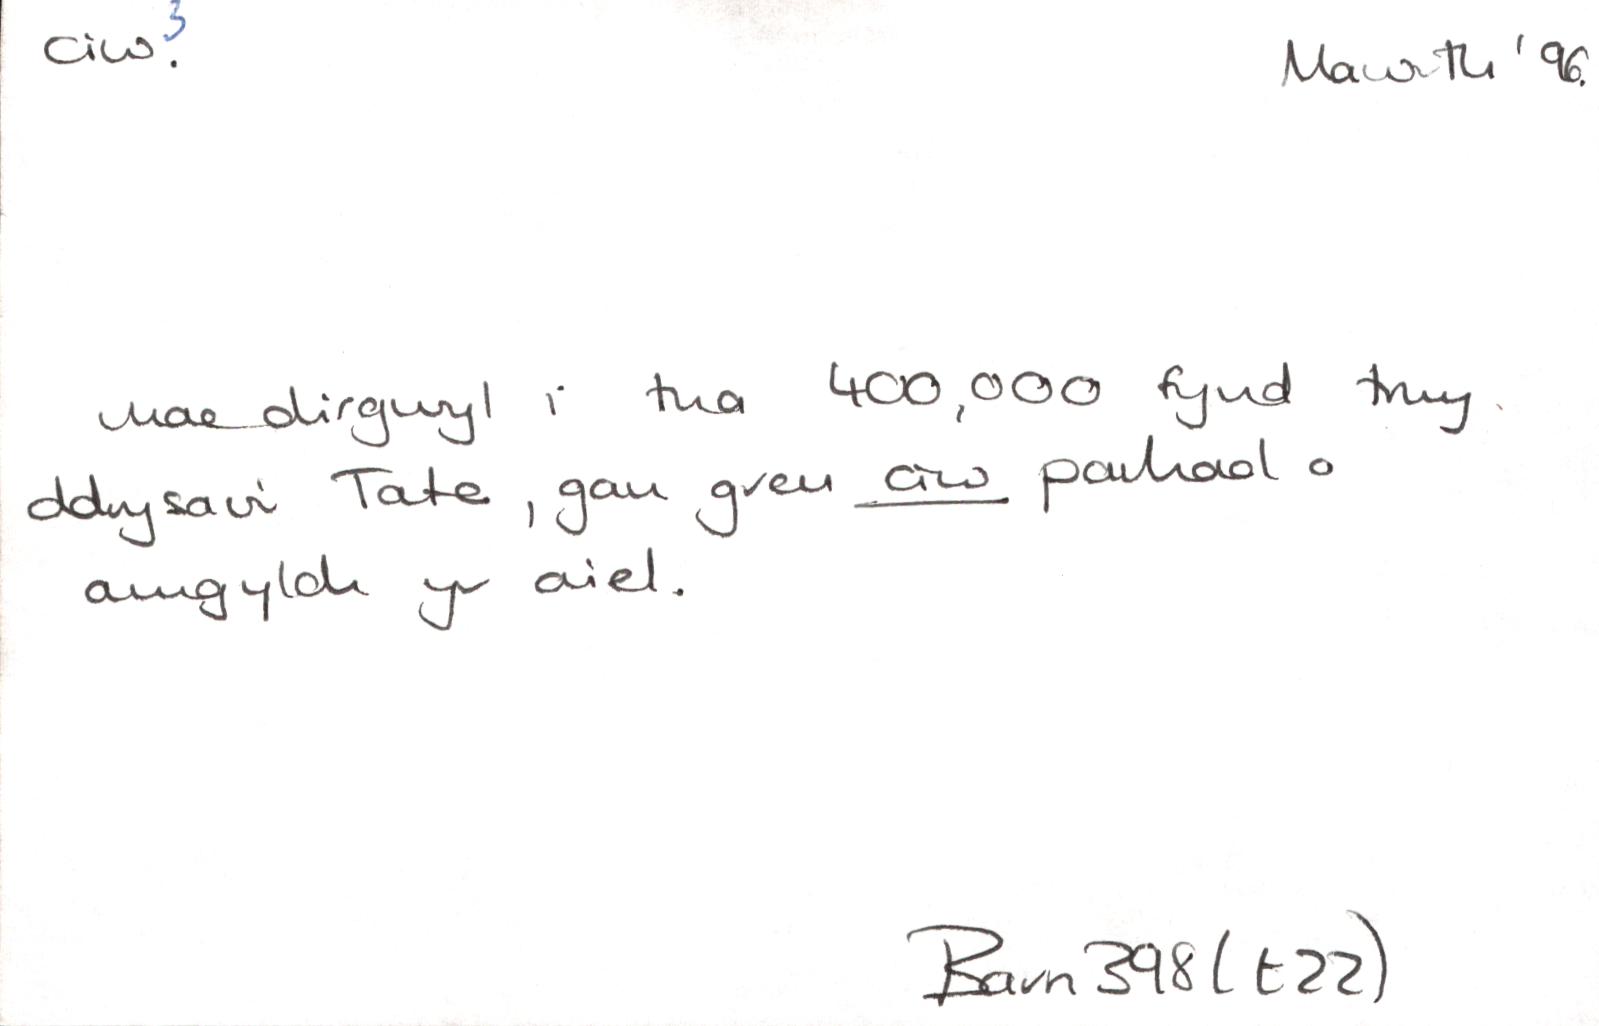 ciw.³ Mawrth '96.
mae dirgwyl i tua 400,000 fynd trwy
ddrysau Tate, gan greu ciw parhaol o
amgylch yr ael.
Barn 398 (t22)